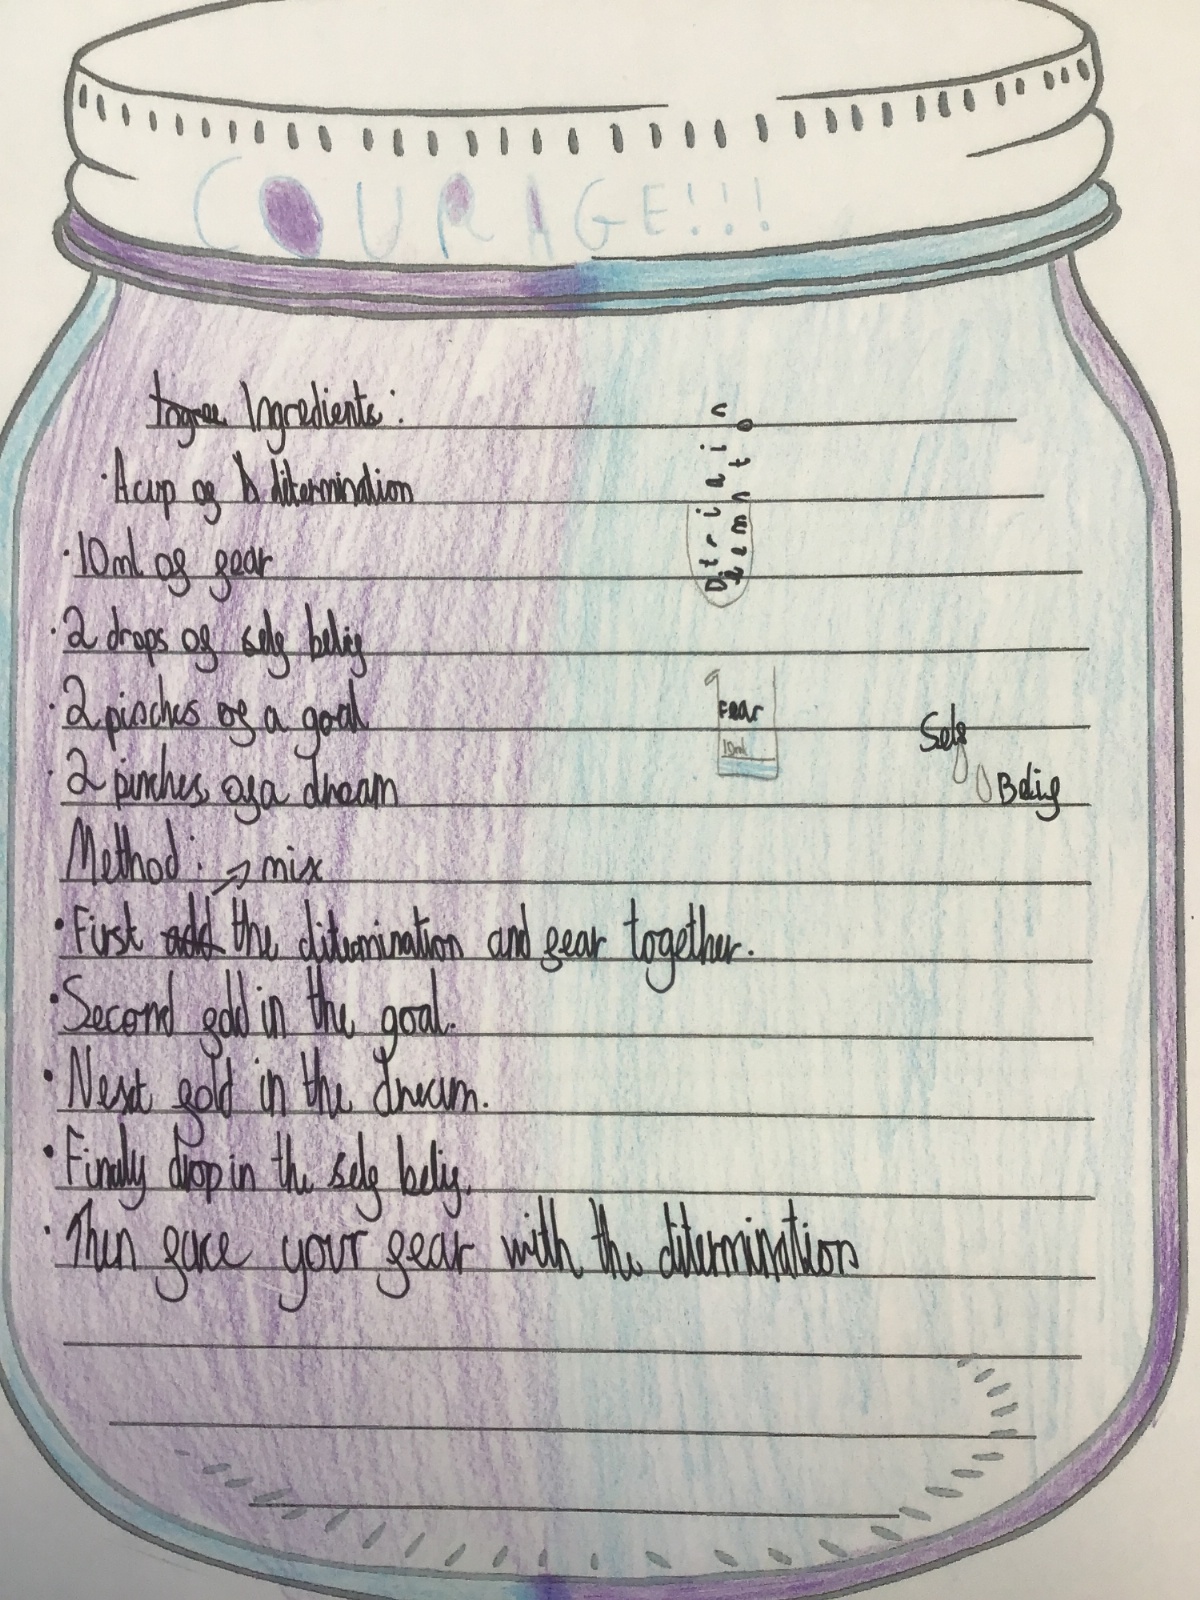 COURAGE!!!
Ingree Ingredients:
·A cup of D ditermination
·10ml of fear
·2 drops of self belif
·2 pinches of a goal
·2 pinches of a dream
Method: → mix
·First add the ditermination and fear together.
·Second fold in the goal.
·Next fold in the dream.
·Finally drop in the self belif.
·Then face your fear with the ditermination
Fear
10ml
Self
Belif